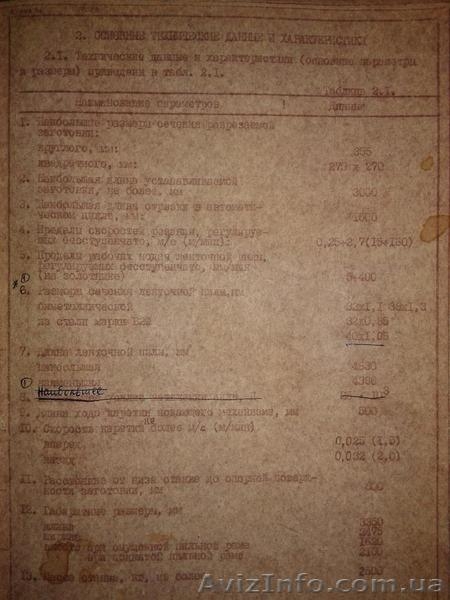 2. ОСНОВНЫЕ ТЕХНИЧЕСКИЕ ДАННЫЕ И ХАРАКТЕРИСТИКИ
2.1. Технические данные и характеристики (основные параметры
и размеры) приведены в табл. 2.1.
Таблица 2.1.
Наименование параметров ! Данные
1. Наибольшие размеры сечения разрезаемой
заготовки:
круглого, мм: 355
квадратного, мм: 270 x 270
2. Наибольшая длина устанавливаемой
заготовки, не более, мм 3000
3. Наибольшая длина отрезки в автомати-
ческом цикле, мм:
4. Пределы скоростей резания, регулируе-
мых бесступенчато, м/с (м/мин): 0,25÷2,7(15÷160)
5. Пределы рабочих подач ленточной пилы,
регулируемых бесступенчато, мм/мин
(на холостине) 5÷400
6. Размеры сечения ленточной пилы, мм
биметаллической 32x1,1 38x1,3
из стали марки В2Ф 32x0,85
40x1,05
7. Длина ленточной пилы, мм
наибольшая 4530
наименьшая 4390
8. Наибольшее
9. Длина хода каретки подающего механизма, мм 500
10. Скорость каретки не более м/с (м/мин)
вперед 0,025 (1,5)
назад 0,032 (2,0)
11. Расстояние от низа станка до опорной поверх-
ности заготовки, мм
12. Габаритные размеры, мм
длина 3350
ширина
высота при опущенной пильной раме
при поднятой пильной раме 2100
13. Масса станка, кг, не более
AvizInfo.com.ua